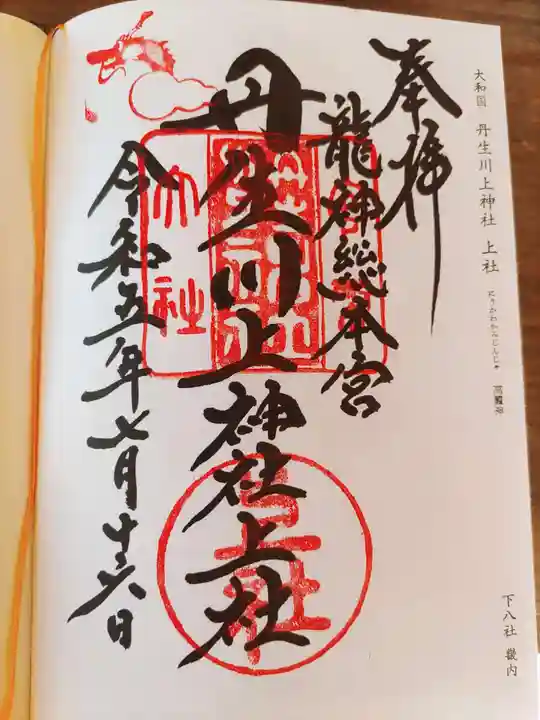 大和国 丹生川上神社 上社 にうかわかみじんじゃ 高龗神
下八社 畿内
奉拝
龍神総本宮
丹生川上神社上社
令和五年七月十六日
六社